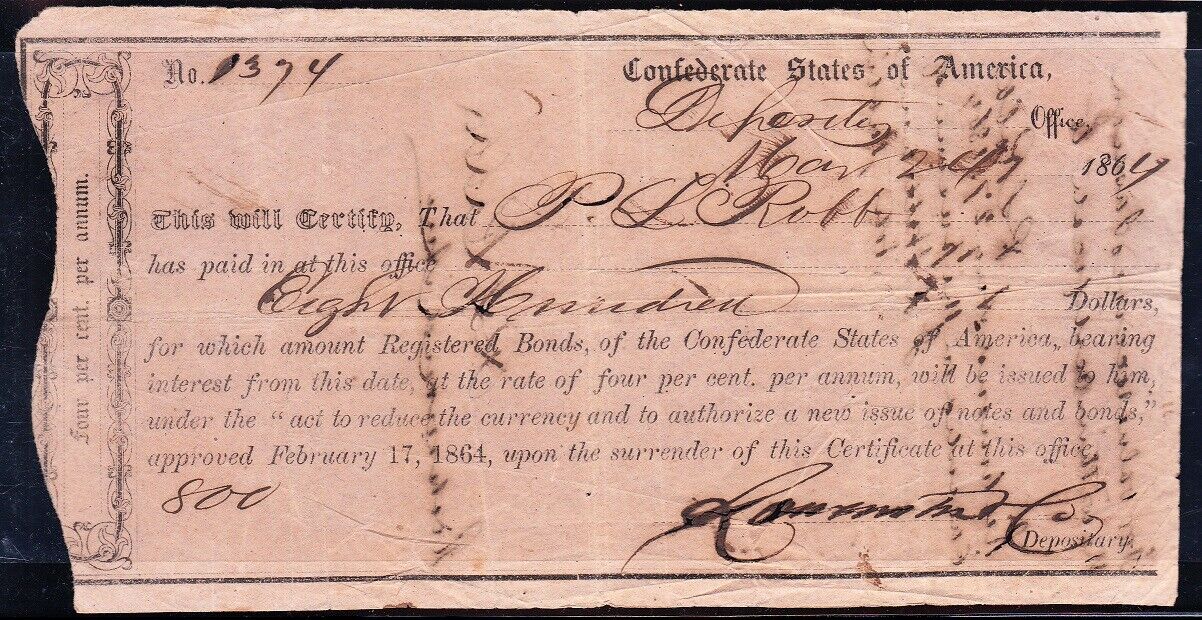 No. 1394
Confederate States of America,
Depository Office,
Mar 24 1864
This will Certify, That P. L. Robb
has paid in at this office
Eight Hundred Dollars,
for which amount Registered Bonds, of the Confederate States of America, bearing
interest from this date, at the rate of four per cent. per annum, will be issued to him,
under the "act to reduce the currency and to authorize a new issue of notes and bonds,"
approved February 17, 1864, upon the surrender of this Certificate at this office.
800
Depositary.
Four per cent. per annum.